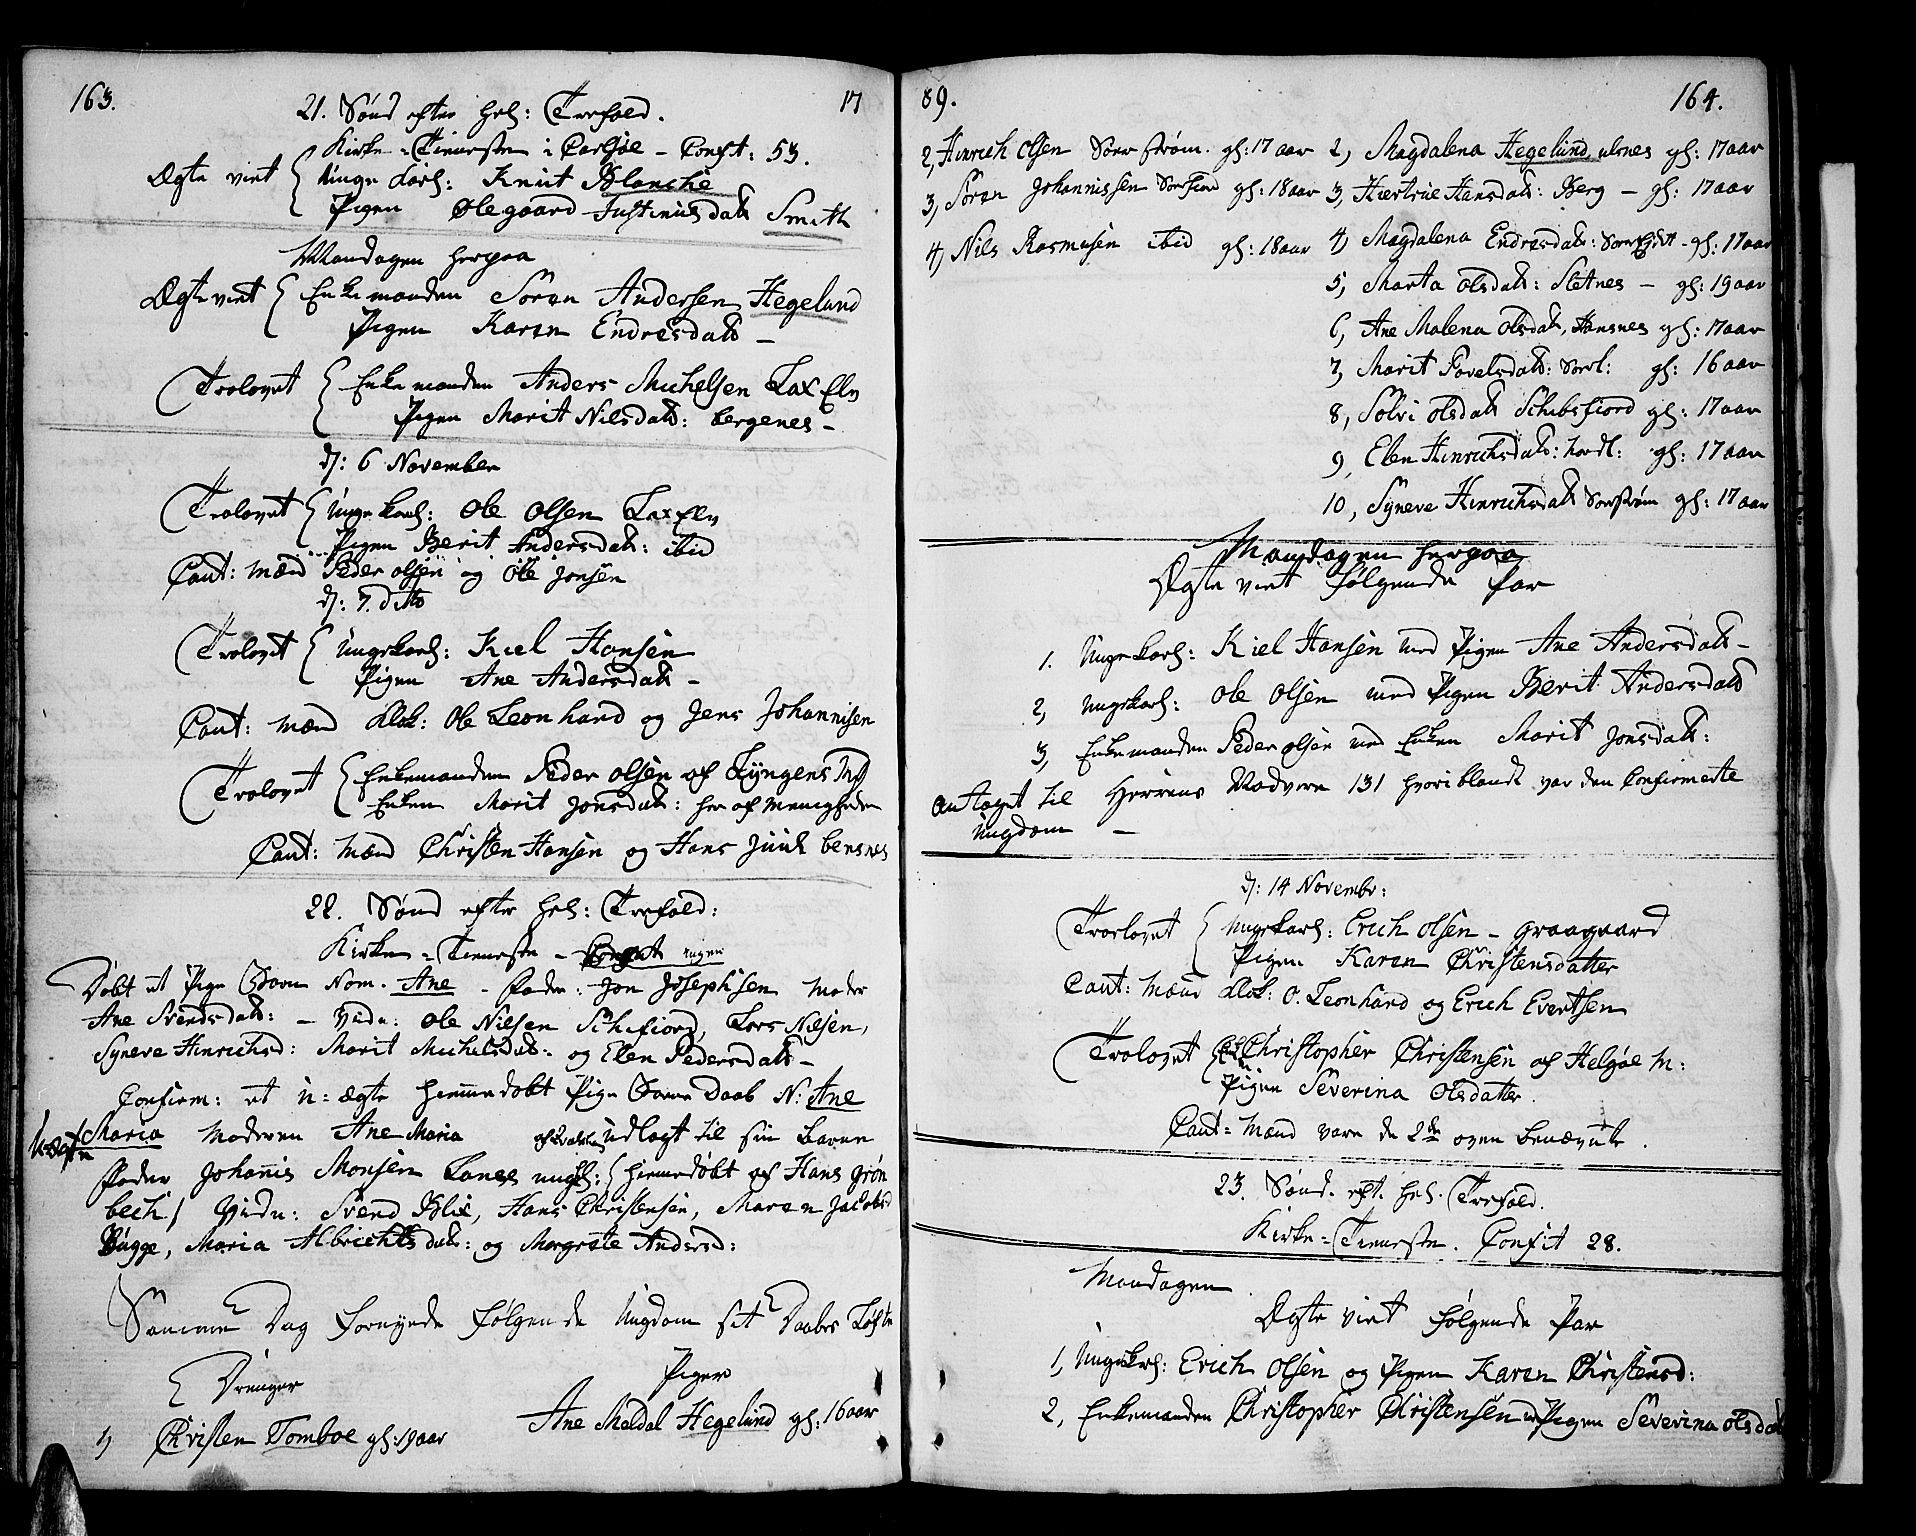 163. 17
21. Sønd efter hel: Trefold.
Kirke-Tieneste i Carlsøe - Confit: 53.
Ægte viet { Unge Karl: Knut Blanchie
Pigen Olegaard Justinusdatt Smith
Mandagen herpaa
Ægte viet { Enkemanden Søren Andersen Hegelund
Pigen Karen Endresdatt -
Trolovet { Enkemanden Anders Michelsen Lax Elv
Pigen Marit Nilsdatt: bergenes -
d: 6 November
Trolovet { Ungekarl: Ole Olsen Lax Elv
Pigen Berit Andersdatt: ibid
Caut: Mænd Peder olsen og Ole Jonsen
d: 7. dito
Trolovet { Ungekarl: Kiel Hansen
Pigen Ane Andersdatt -
Caut: Mænd Klok: Ole Leonhard og Jens Johannisen
Trolovet { Enkemanden Peder olsen af Lyngens
Enken Marit Jonsdatt: her af Menigheden
Caut: Mænd Christen Hansen og Hans Juul bensnes
22. Sønd efter hel: Trefold:
Kirke-Tieneste - Confit ingen
Døbt et Pige Barn Nom. Ane - Fader: Jon Josephsen Moder
Ane Svendsdatt: - Vidn: Ole Nilsen Schefiord, Lars Nilsen,
Syneve Hinrichsd: Marit Michelsdatt: og Elen Pedersdatt -
Confirm: et u-ægte hiemmedøbt Pige Barn Daab N: Ane
Maria Moderen Ane Maria udlagt til sin Barne
Fader Johannis Monsen Lanes ungk: (hiemedøbt af Hans Grøn
bech) Vidn: Svend Blix, Hans Christensen, Maren Jacobsd
Bugge, Maria Albrichtsdatt: og Margrete Andersd:
Samme Dag fornyede følgende Ungdom sit Daabes Løfte
Drenger Piger
1, Christen Tomboe gl: 19 aar Ane Maldal Hegelund gl: 16 aar
89. 164.
2, Hinrich Olsen Sørstrøm. gl: 17 aar 2, Magdalena Hegelund, ulsnes gl: 17 aar
3, Søren Johannissen gl: 18 aar 3, Hansdatt: Berg - gl: 17 aar
4, Nils Rasmusen ibid gl: 18 aar 4, Magdalena Endresdatt: gl: 17 aar
5, Marta olsdatt: Sletnes - gl: 19 aar
6, Ane Malena Olsdatt, Hansnes gl: 17 aar
7, Marit Povelsdatt: gl: 16 aar
8, Sølvi olsdatt Schibsfiord gl: 17 aar
9, Elen Hinrichsdatt: gl: 17 aar
10, Syneve Hinrichsdatt Sørstrøm gl: 17 aar
Mandagen herpaa
Ægte viet følgende Par
1. Ungekarl: Kiel Hansen med Pigen Ane Andersdatt -
2, Ungekarl: Ole Olsen med Pigen Berit Andersdatt
3, Enkemanden Peder olsen med Enken Marit Jonsdatt:
antaget til Herrens Nadvere 131 hvoriblandt var den Confirmerte
Ungdom -
d: 14 Novembr:
Trolovet { Ungekarl: Erich Olsen - Graagaard
Pigen Karen Christensdatter
Caut: Mænd Klok: O. Leonhard og Erich Evertsen
Trolovet Christopher Christensen af Helgøe M:
Pigen Severina Olsdatter.
Caut: Mænd vare de 2de oven benævnte.
23. Sønd. eft. hel. Trefold.
Kirke-Tieneste. Confit 28.
Mandagen.
Ægte viet følgende Par
1, Ungekarl: Erich Olsen og Pigen Karen Christensd:
2, Enkemanden Christopher Christensen Pigen Severina olsdatt